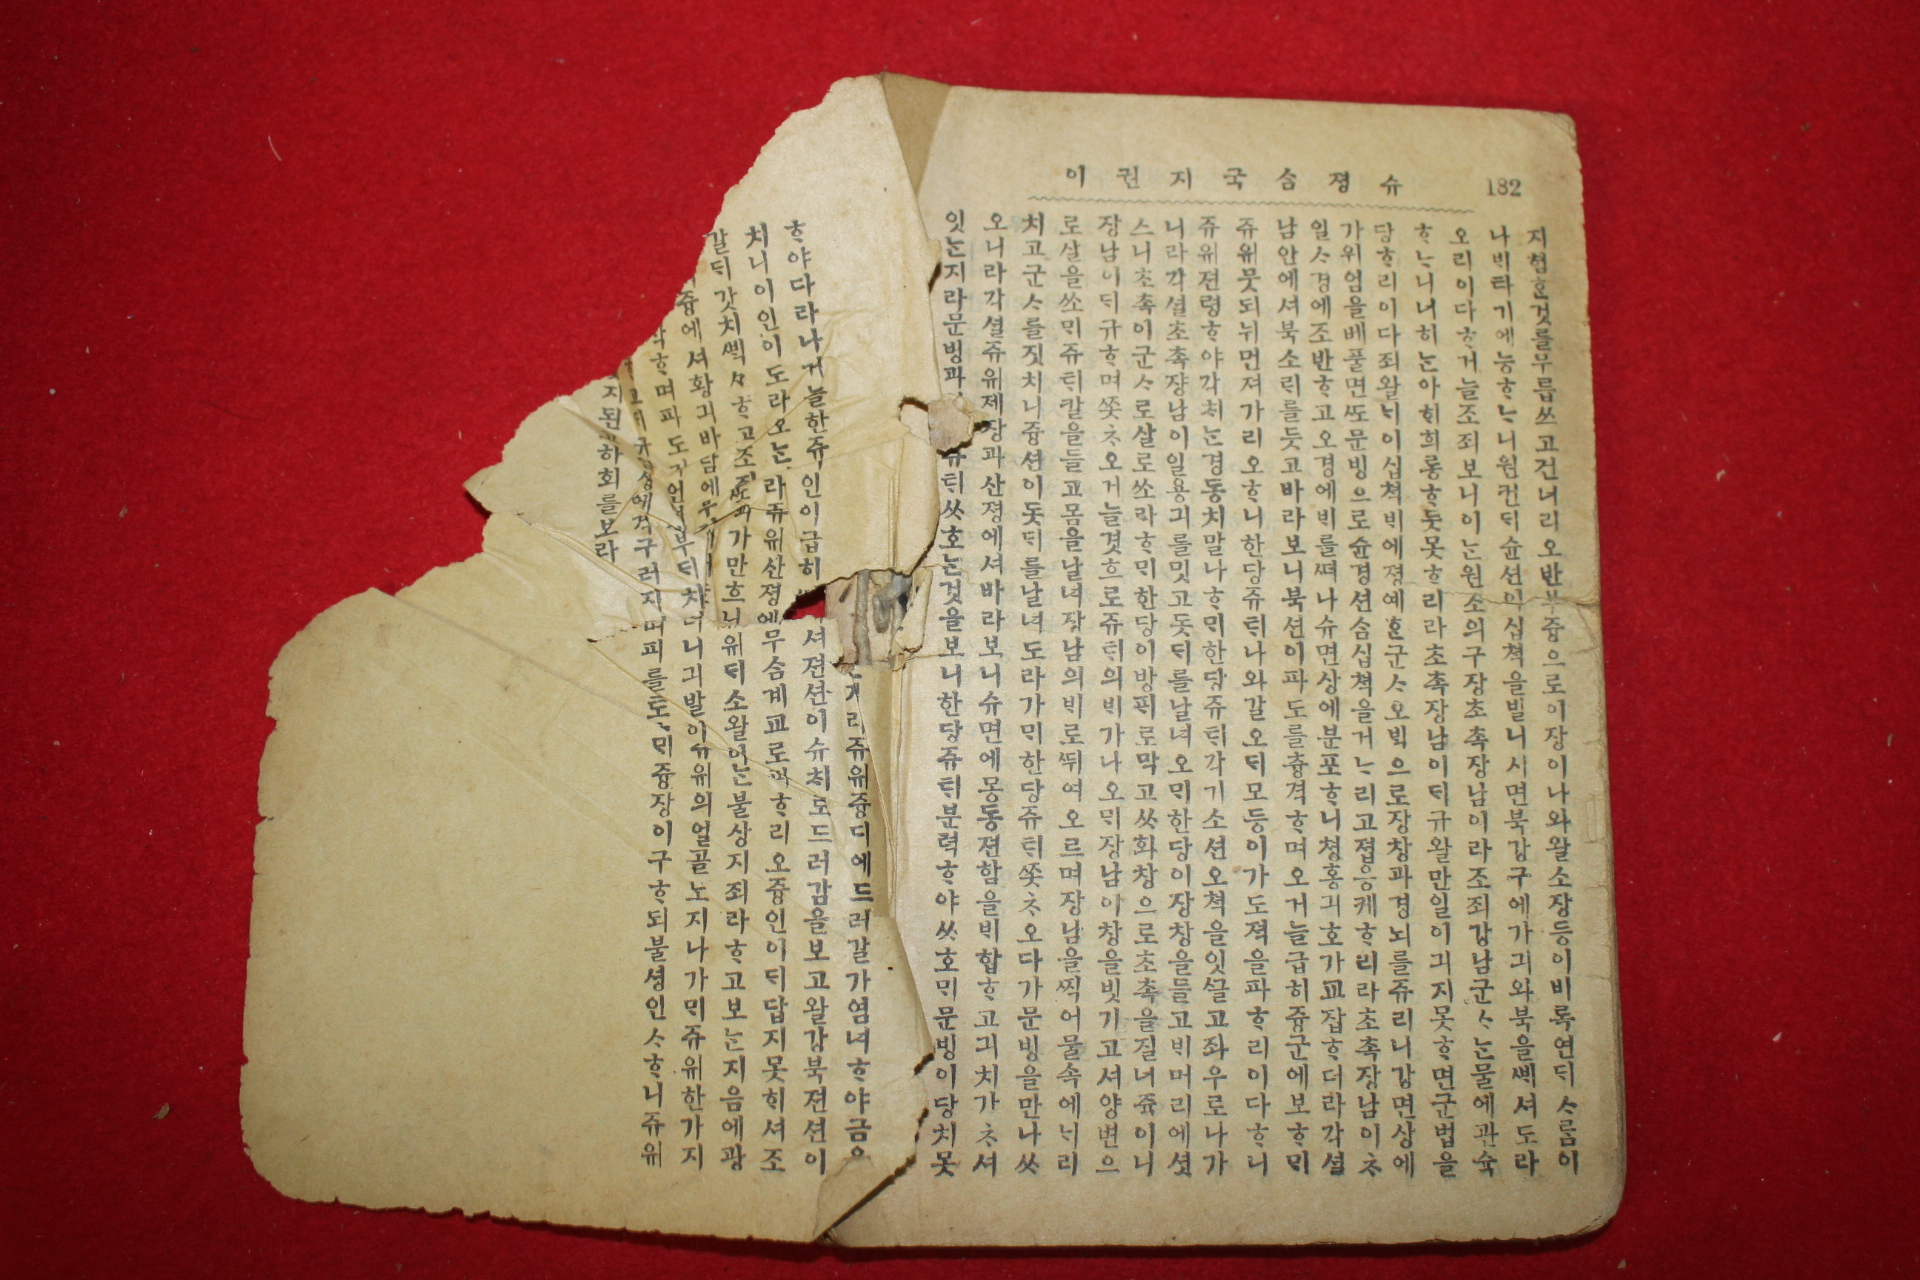 182 슈졍숨국지권이
지쳠ᄒᆞᆫ것를무릅쓰고건너리오반부즁으로이장이나와왈소장등이비록연ᄃᆡᄉᆞ름이
나ᄇᆡ타기에능ᄒᆞᄂᆞ니원컨ᄃᆡ슌션의십쳑을빌니시면북강구에가긔와북을ᄲᅦ셔도라
오리이다ᄒᆞ거늘조죄보니이ᄂᆞᆫ원소의구장초촉장남이라조죄강남군ᄉᆞᄂᆞᆫ물에관슉
ᄒᆞᄂᆞ니너히ᄂᆞᆫ아희희롱ᄒᆞ듯못ᄒᆞ리라초촉장남이ᄃᆡ규왈만일이긔지못ᄒᆞ면군법을
당ᄒᆞ리이다죄왈ᄂᆡ이십쳑ᄇᆡ에졍예ᄒᆞᆫ군ᄉᆞ오ᄇᆡᆨ으로장창과경뇌를쥬리니강면상에
가위엄을베풀면ᄯᅩ문빙으로슌경션숨십쳑을거ᄂᆞ리고졉응케ᄒᆞ리라초촉장남이ᄎᆞ
일ᄉᆞ경에조반ᄒᆞ고오경에ᄇᆡ를ᄯᅥ나슈면상에분포ᄒᆞ니쳥홍긔호가교잡ᄒᆞ더라각셜
남안에셔북소ᄅᆡ를듯고바라보니북션이파도를츙격ᄒᆞ며오거늘급히즁군에보ᄒᆞᄆᆡ
쥬위뭇되뉘먼져가리오ᄒᆞ니한당쥬ᄐᆡ나와갈오ᄃᆡ모등이가도젹을파ᄒᆞ리이다ᄒᆞ니
쥬위젼령ᄒᆞ야각ᄎᆡᄂᆞᆫ경동치말나ᄒᆞᄆᆡ한당쥬ᄐᆡ각기소션오쳑을잇글고좌우로나가
니라각셜초촉쟝남이일용긔를밋고돗ᄃᆡ를날녀오ᄆᆡ한당이장창을들고ᄇᆡ머리에셧
스니초촉이군ᄉᆞ로살로쏘라ᄒᆞᄆᆡ한당이방ᄑᆡ로막고ᄊᆞ화창으로초촉을질너쥭이니
장남이ᄃᆡ규ᄒᆞ며ᄶᅩᆺᄎᆞ오거늘겻흐로쥬ᄐᆡ의ᄇᆡ가나오ᄆᆡ장남이창을빗기고셔양변으
로살을쏘ᄆᆡ쥬ᄐᆡ칼을들고몸을날녀장남의ᄇᆡ로ᄯᅱ여오르며장남을찍어물속에ᄂᆡ리
치고군ᄉᆞ를짓치니즁션이돗ᄃᆡ를날녀도라가ᄆᆡ한당쥬ᄐᆡᄶᅩᆺᄎᆞ오다가문빙을만나ᄊᆞ
오니라각셜쥬위제장과산졍에셔바라보니슈면에몽동젼함을ᄇᆡ합ᄒᆞ고긔치가ᄎᆞ셔
잇ᄂᆞᆫ지라문빙과 쥬ᄐᆡᄊᆞ호ᄂᆞᆫ것을보니한당쥬ᄐᆡ분력ᄒᆞ야ᄊᆞ호ᄆᆡ문빙이당치못
ᄒᆞ야다라나거늘한쥬인이급히 쥬위즁디에드러갈가염녀ᄒᆞ야금으
치니이인이도라오ᄂᆞᆫ 라쥬위산졍에셔젼션이슈ᄎᆡ로드러감을보고왈강북젼션이
갈ᄃᆡ갓치 ᄒᆞ고조 가만흐니무슴계교로파ᄒᆞ리오즁인이ᄃᆡ답지못ᄒᆡ셔조
즁에셔황긔바담에 유ᄃᆡ소왈이ᄂᆞᆫ불상지죄라ᄒᆞ고보ᄂᆞᆫ지음에광
ᄒᆞ며파도 부ᄃᆡ치더니긔발이쥬위의얼골노지나가ᄆᆡ쥬위한가지
구러지며피를도 ᄆᆡ즁장이구ᄒᆞ되불셩인ᄉᆞᄒᆞ니쥬위
지된 하회를보라